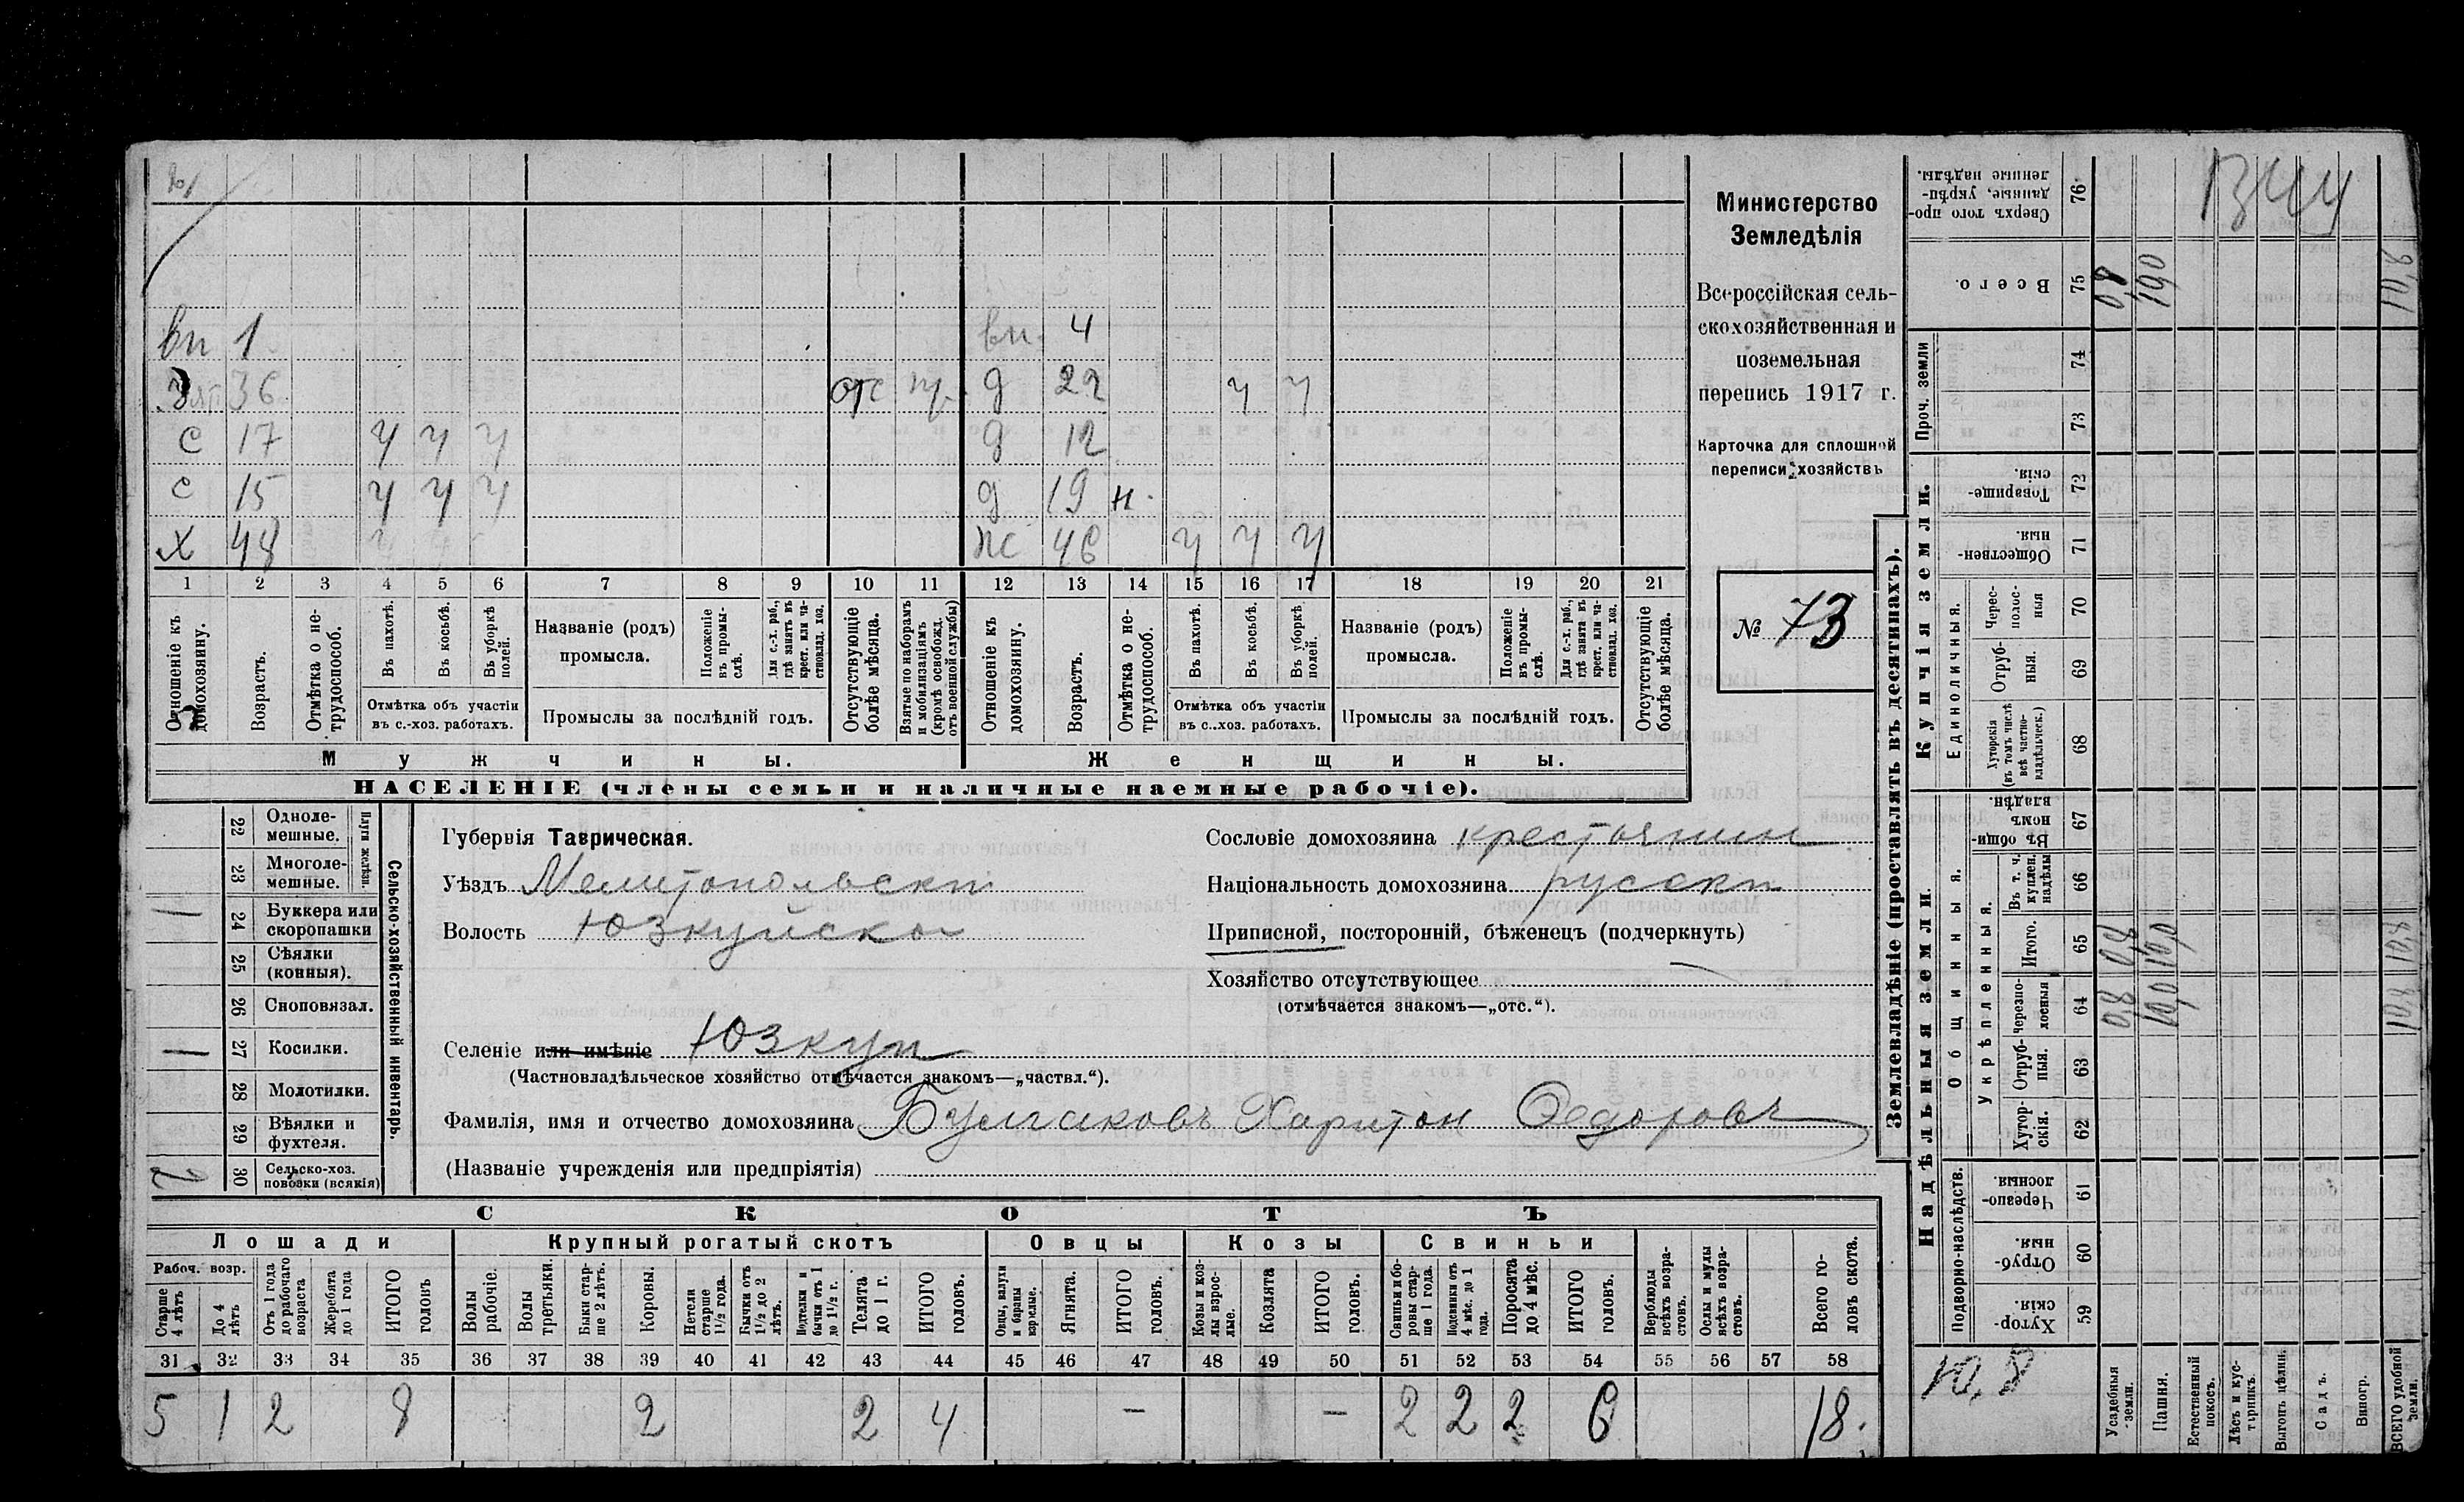 вн 1 вн. 4
зят 36 отс д 22 ч ч
с 17 ч ч ч д 12
с 15 ч ч ч д 19 н.
х 48 ж 46 ч ч ч
1 2 3 4 5 6 7 8 9 10 11 12 13 14 15 16 17 18 19 20 21
Отношеніе къ домохозяину.
Возрастъ.
Отмѣтка о не-
трудоспособ.
Въ пахотѣ.
Въ косьбѣ.
Въ уборкѣ полей.
Отмѣтка объ участіи
въ с.-хоз. работахъ.
Названіе (родъ)
промысла.
Положеніе въ промы-
слѣ.
Для с.-х. раб., гдѣ занятъ въ крест. или ча-
стновлад. хоз.
Промыслы за послѣдній годъ.
Отсутствующіе болѣе мѣсяца.
Взятые по наборамъ и мобилизаціямъ (кромѣ освобожд. отъ военной службы)
Отношеніе къ домохозяину.
Возрастъ.
Отмѣтка о не-
трудоспособ.
Въ пахотѣ.
Въ косьбѣ.
Въ уборкѣ полей.
Отмѣтка объ участіи
въ с.-хоз. работахъ.
Названіе (родъ)
промысла.
Положеніе въ промы-
слѣ.
Для с.-х. раб., гдѣ занята въ крест. или ча-
стновлад. хоз.
Промыслы за послѣдній годъ.
Отсутствующіе болѣе мѣсяца.
Мужчины. Женщины.
НАСЕЛЕНІЕ (члены семьи и наличные наемные рабочіе).
Министерство
Земледѣлія
Всероссійская сель-
скохозяйственная и
поземельная
перепись 1917 г.
Карточка для сплошной
переписи хозяйствъ
№ 73
22 Одноле-
мешные.
23 Многоле-
мешные.
Плуги желѣзн.
24 Буккера или
скоропашки
25 Сѣялки
(конныя).
26 Сноповязал.
27 Косилки.
28 Молотилки.
29 Вѣялки и
фухтеля.
30 Сельско-хоз.
повозки (всякія)
Сельско-хозяйственный инвентарь.
Губернія Таврическая.
Уѣздъ Мелитопольски
Волость Юзкуйска
Селеніе или имѣніе Юзкуи
(Частновладѣльческое хозяйство отмѣчается знакомъ—„частвл.“).
Фамилія, имя и отчество домохозяина Булгаковъ Харитон Федоровъ
(Названіе учрежденія или предпріятія)
Сословіе домохозяина крестьянин
Національность домохозяина русски
Приписной, посторонній, бѣженецъ (подчеркнуть)
Хозяйство отсутствующее
(отмѣчается знакомъ—„отс.“).
СКОТЪ
Лошади Крупный рогатый скотъ Овцы Козы Свиньи
Рабоч. возр.
Старше 4 лѣтъ
До 4 лѣтъ
Отъ 1 года до рабочаго возраста
Жеребята до 1 года
ИТОГО головъ
Волы рабочіе.
Волы третьяки.
Быки стар-
ше 2 лѣтъ.
Коровы.
Нетели старше 1½ года.
Бычки отъ 1½ до 2 лѣтъ.
Подтелки и бычки отъ 1 до 1½ г.
Телята до 1 г.
ИТОГО головъ.
Овцы, валухи и бараны взрослые.
Ягнята.
ИТОГО головъ.
Козы и коз-
лы взрос-
лые.
Козлята
ИТОГО головъ.
Свиньи и бо-
ровы стар-
ше 1 года.
Подсвинки отъ 4 мѣс. до 1 года.
Поросята до 4 мѣс.
ИТОГО головъ.
Верблюды всѣхъ возра-
стовъ.
Ослы и мулы всѣхъ возра-
стовъ.
Всего го-
ловъ скота.
31 32 33 34 35 36 37 38 39 40 41 42 43 44 45 46 47 48 49 50 51 52 53 54 55 56 57 58
5 1 2 8 2 2 4 — — 2 2 2 6 18.
Землевладѣніе (проставлять въ десятинахъ).
Надѣльныя земли. Купчія земли. Проч. земли
Подворно-наслѣдств.
Общинныя.
Укрѣпленныя.
Единоличныя.
59 Хутор-
скія.
60 Отруб-
ныя.
61 Черезпо-
лосныя.
62 Хутор-
скія.
63 Отруб-
ныя.
64 Черезпо-
лосныя
65 Итого.
66 Въ т. ч. куплен. надѣлы
67 Въ общи-
номъ владѣн.
68 Хуторскія (въ томъ числѣ всѣ частно-
владѣльческ.)
69 Отруб-
ныя.
70 Черес-
полос-
ныя
71 Обществен-
ныя.
72 Товарище-
скія.
73
74
75 Всего.
76 Сверхъ того про-
данные, укрѣп-
ленные надѣлы.
Усадебныя земли. 0,8 0,8 0,8
Пашня. 10,0 10,0 10,0
Естественный покосъ.
Лѣсъ и кус-
тарникъ.
Выгонъ цѣлин.
Садъ.
Виногр.
ВСЕГО удобной земли. 10,8 10,8 10,8
10,8